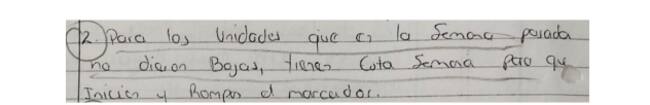 2. Para los Unidades que en la Semana pasada
no dieron Bajas, tienen Esta Semana para que
Inicien y Rompan el marcador.